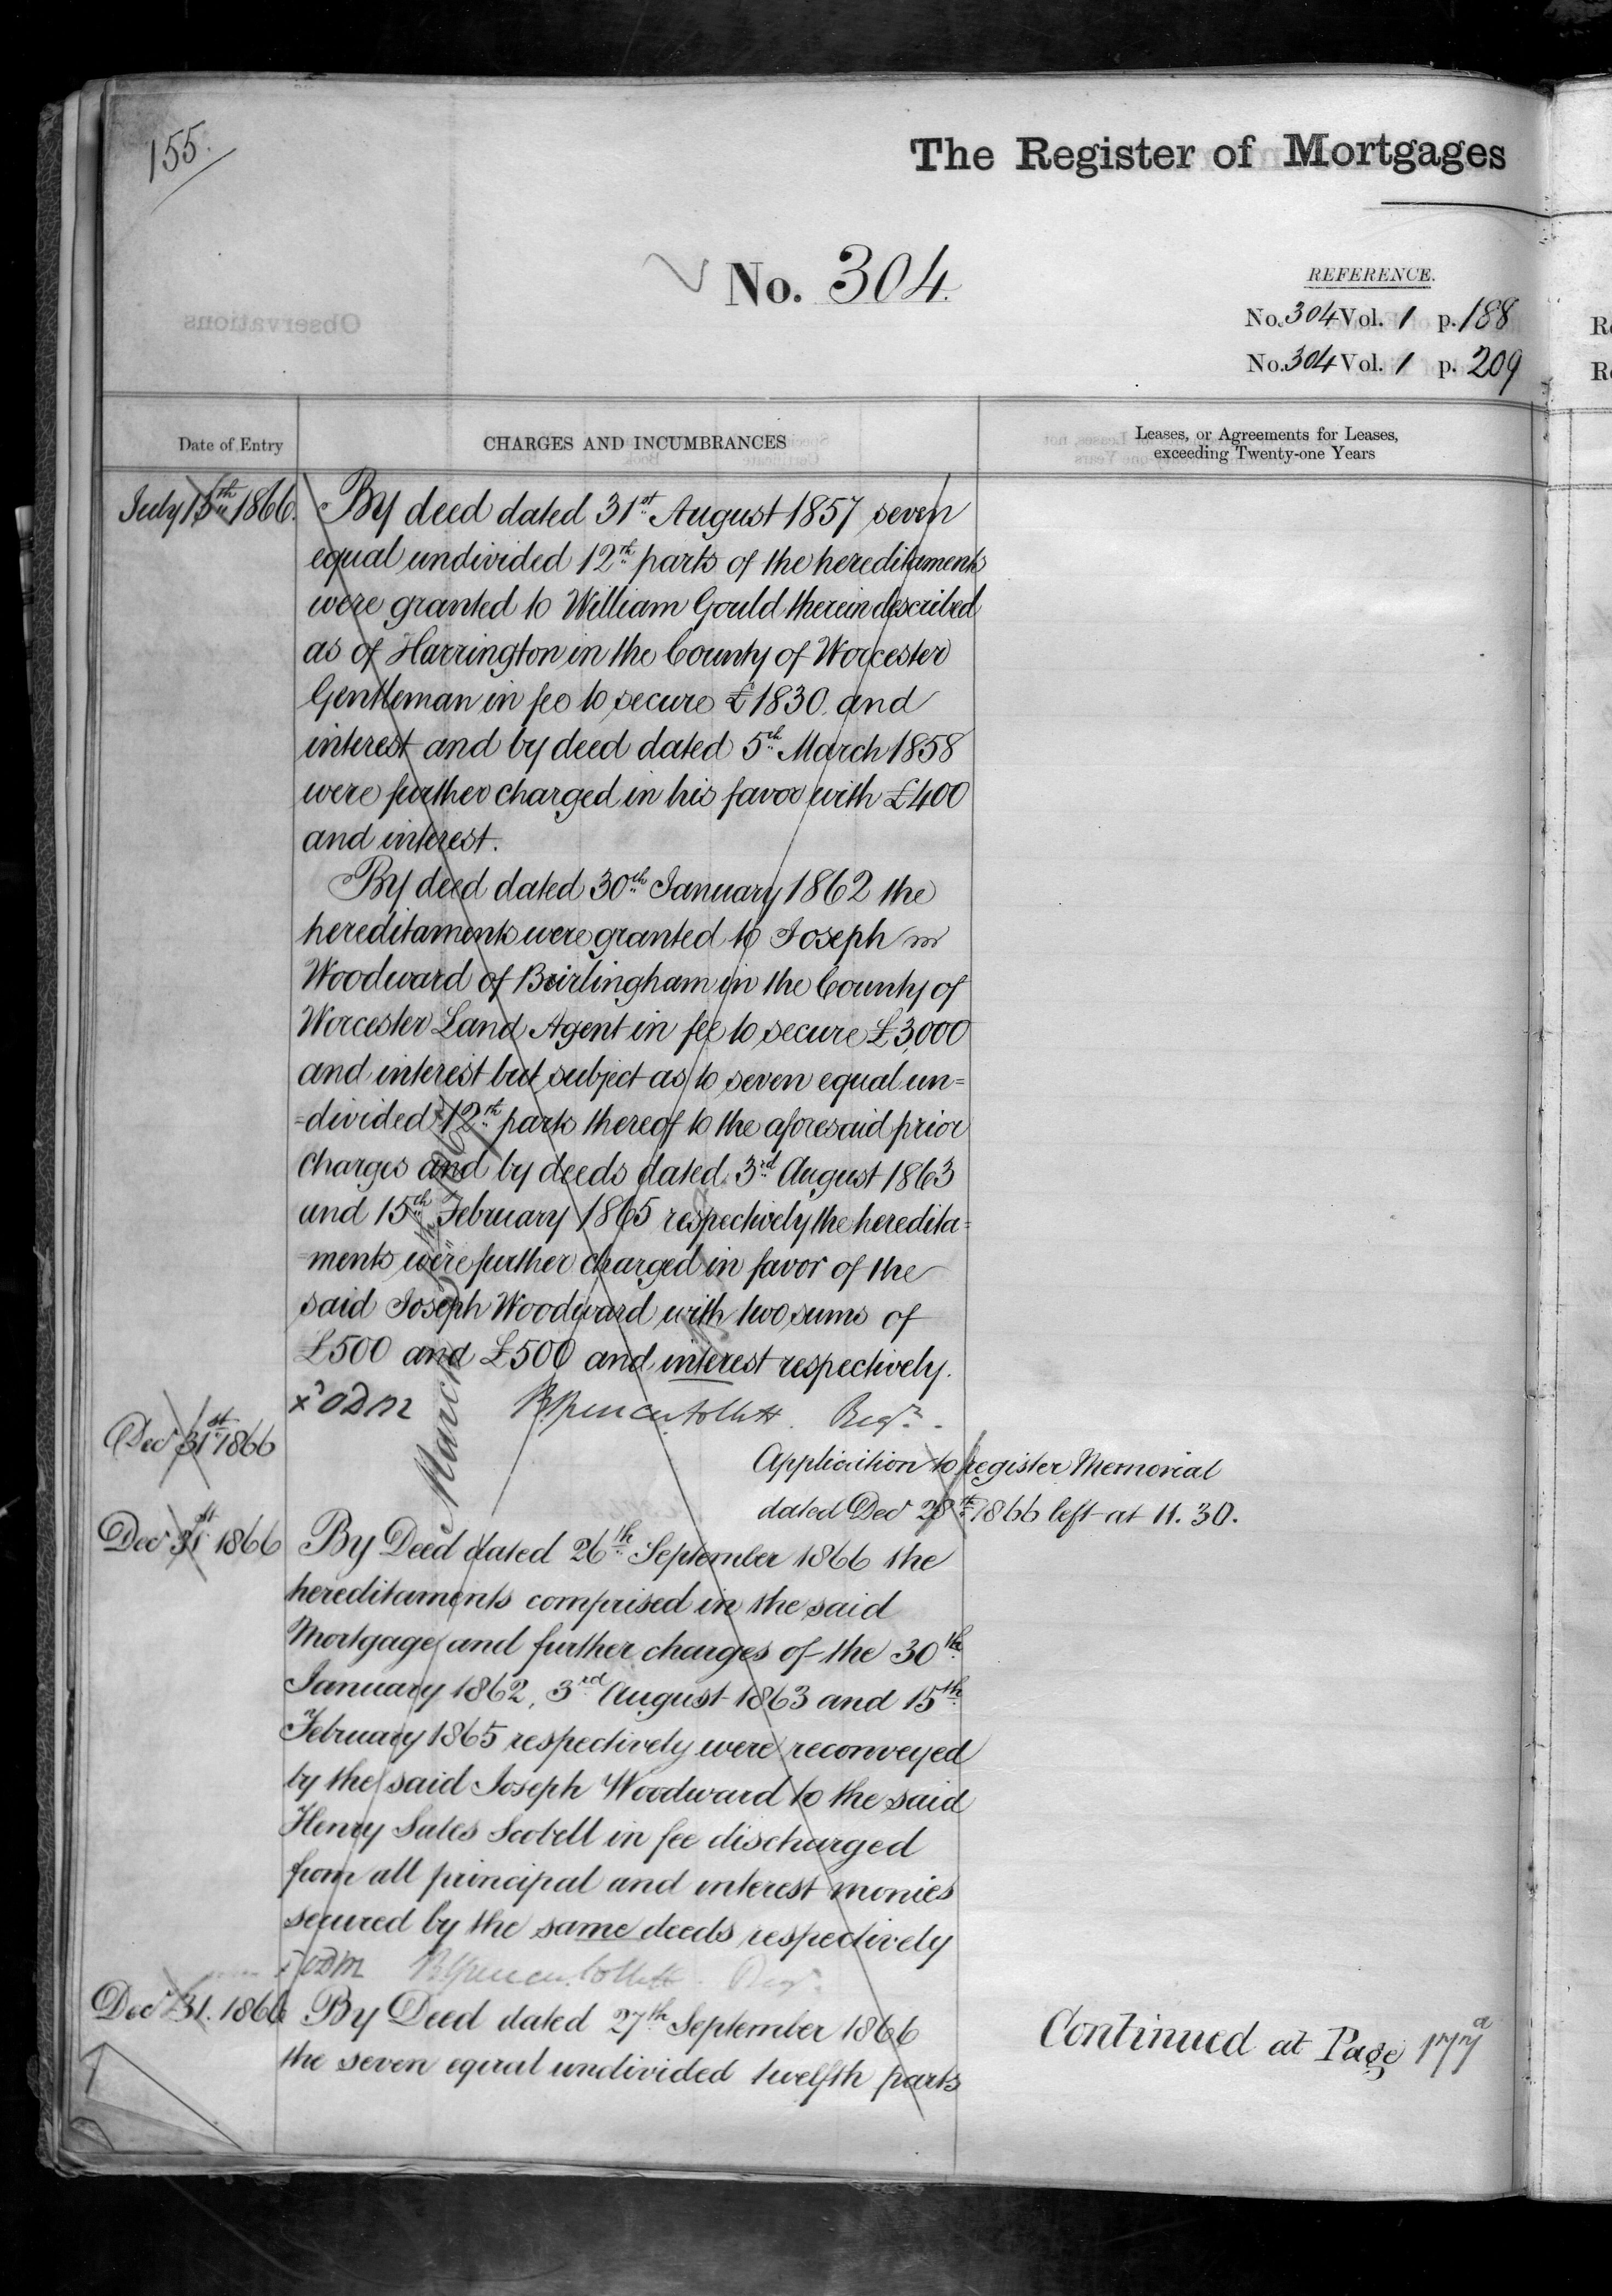 155.
The Register of Mortgages
No. 304.
REFERENCE.
No. 304 Vol. 1 p. 188
No. 304 Vol. 1 p. 209
Date of Entry
CHARGES AND INCUMBRANCES
Leases, or Agreements for Leases,
exceeding Twenty-one Years
July 13th 1866.
By deed dated 31st August 1857 seven
equal undivided 12th parts of the hereditaments
were granted to William Gould therein described
as of Harrington in the County of Worcester
Gentleman in fee to secure £1830 and
interest and by deed dated 5th March 1858
were further charged in his favor with £400
and interest.
By deed dated 30th January 1862 the
hereditaments were granted to Joseph
Woodward of Birlingham in the County of
Worcester Land Agent in fee to secure £3,000
and interest but subject as to seven equal un=
=divided 12th parts thereof to the aforesaid prior
charges and by deeds dated 3rd August 1863
and 15th February 1865 respectively the heredita=
=ments were further charged in favor of the
said Joseph Woodward with two sums of
£500 and £500 and interest respectively.
Regr.
March
Dec 31st 1866
Application to register Memorial
dated Dec 28th 1866 left at 11.30.
Dec 31st 1866
By Deed dated 26th September 1866 the
hereditaments comprised in the said
Mortgage and further charges of the 30th
January 1862, 3rd August 1863 and 15th
February 1865 respectively were reconveyed
by the said Joseph Woodward to the said
Henry Sales Scobell in fee discharged
from all principal and interest monies
secured by the same deeds respectively
Regr.
Dec 31. 1866
By Deed dated 27th September 1866
the seven equal undivided twelfth parts
Continued at Page 177a